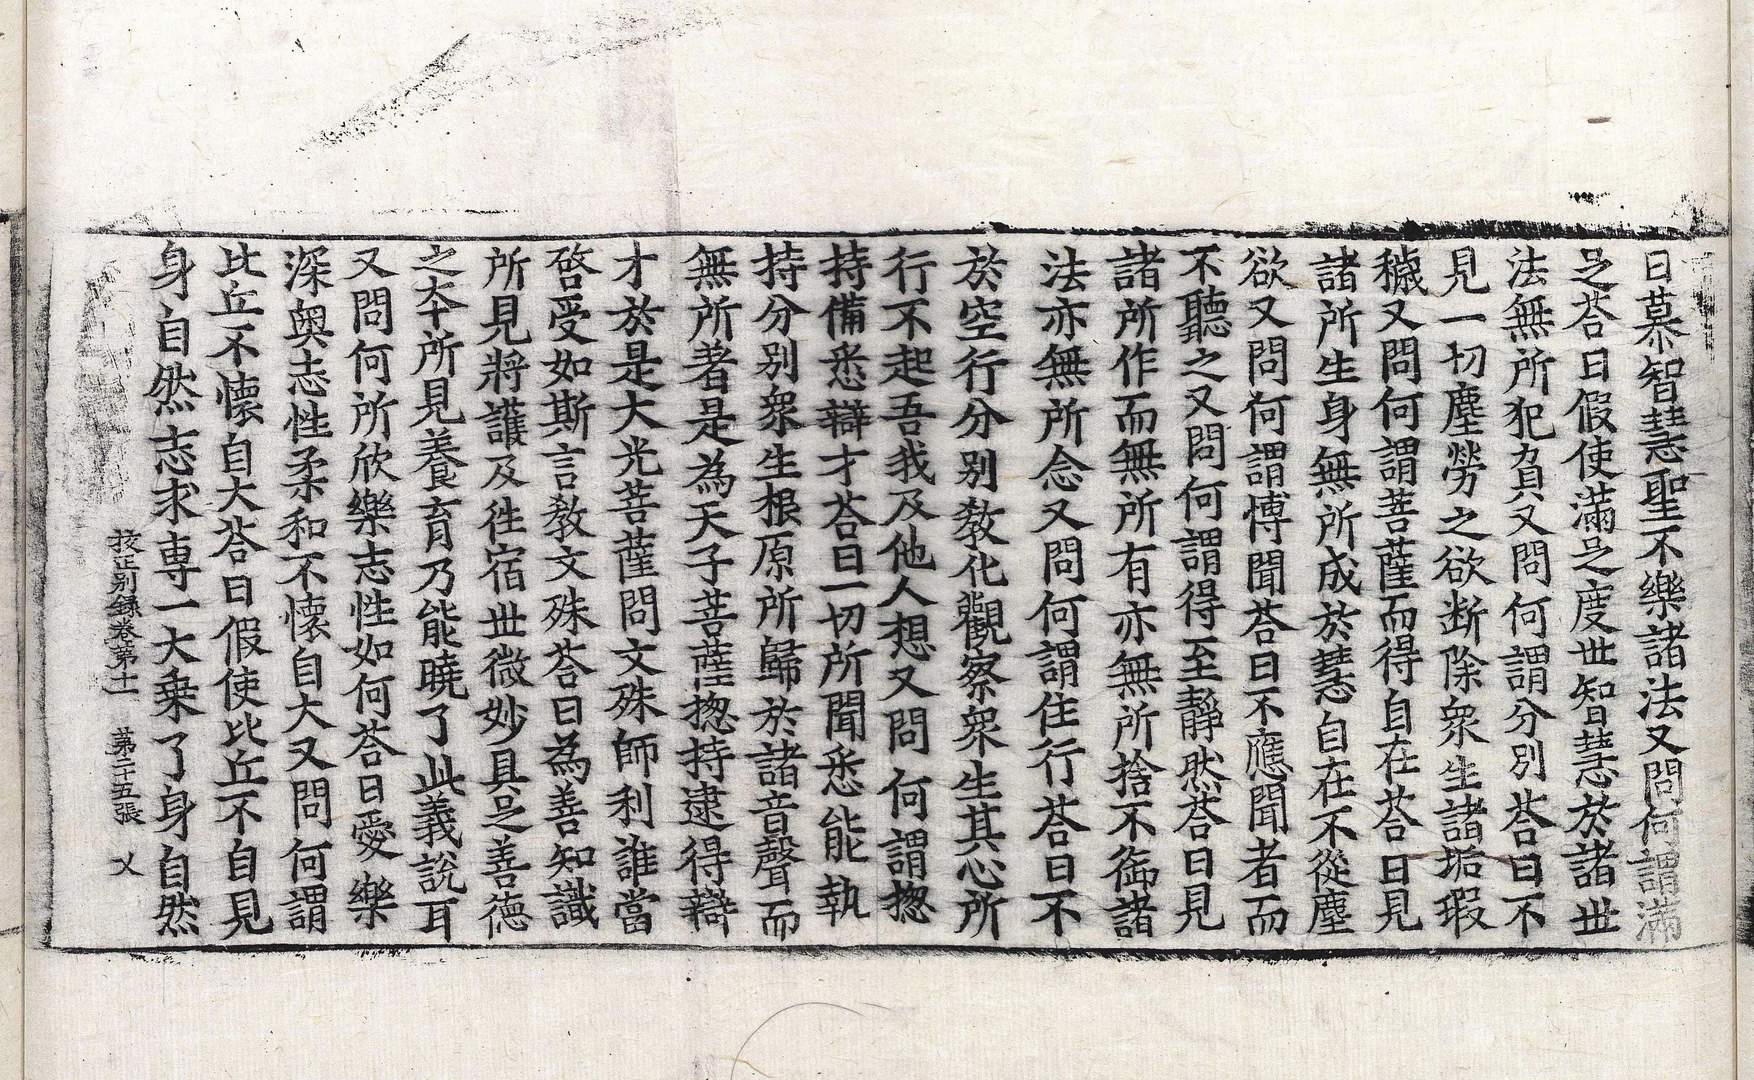 曰慕智慧聖不樂諸法又問何謂滿
足荅曰假使滿足度世智慧於諸世
法無所犯負又問何謂分別荅曰不
見一切塵勞之欲断除衆生諸垢瑕
穢又問何謂菩薩而得自在荅曰見
諸所生身無所成於慧自在不從塵
欲又問何謂愽聞荅曰不應聞者而
不聽之又問何謂得至靜然荅曰見
諸所作而無所有亦無所捨不御諸
法亦無所念又問何謂住行荅曰不
於空行分別教化觀察衆生其心所
行不起吾我及他人想又問何謂揔
持備悉辯才荅曰一切所聞悉能執
持分別衆生根原所歸於諸音聲而
無所著是為天子菩薩揔持逮得辯
才於是大光菩薩問文殊師利誰當
啓受如斯言教文殊荅曰為善知識
所見將護及徃宿世微妙具足善德
之夲所見養育乃能曉了此義說耳
又問何所欣樂志性如何荅曰愛樂
深奥志性柔和不懷自大又問何謂
比丘不懷自大荅曰假使比丘不自見
身自然志求專一大乗了身自然
挍正別録卷第十一　第二十五張　乂